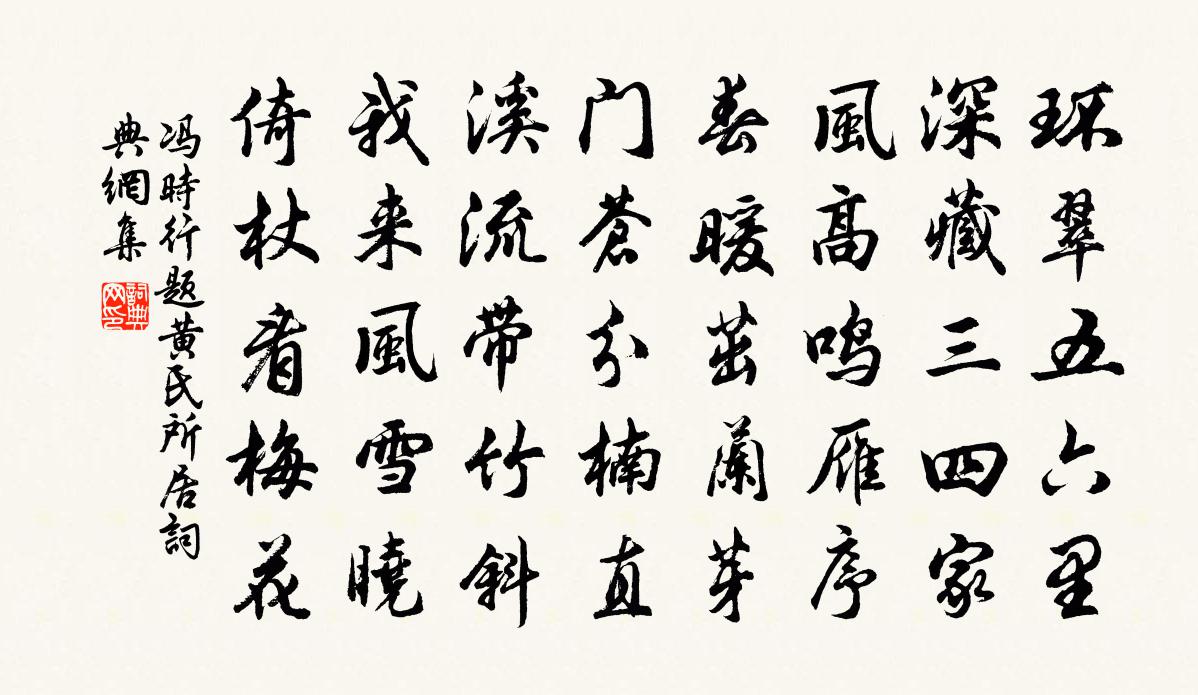 环翠五六里
深藏三四家
風高鸣雁序
春暖茁蘭芽
门蒼分楠直
溪流帶竹斜
我来風雪曉
倚杖看梅花
冯時行題黄民所居詞
典網集
詞典
网印